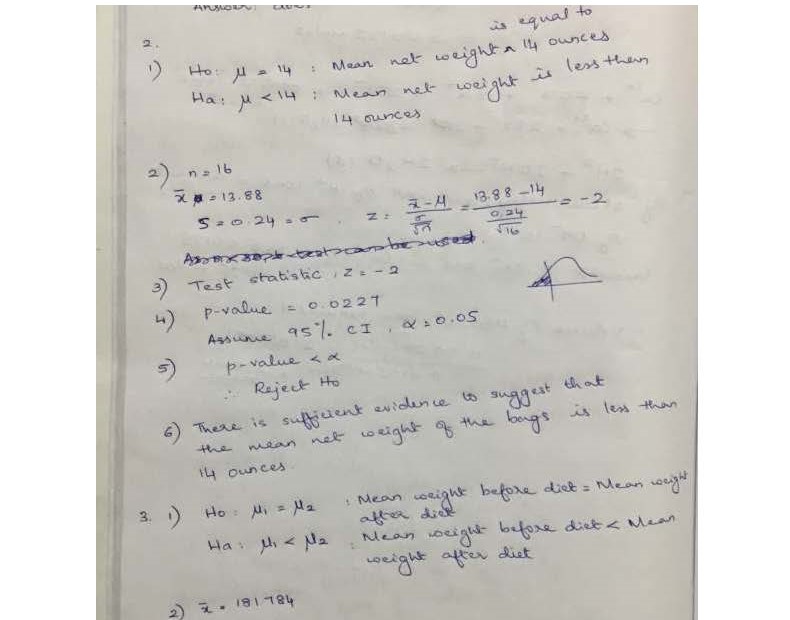 2.
is equal to
1) Ho: μ = 14 : Mean net weight ^ 14 ounces
Ha: μ < 14 : Mean net weight is less than
14 ounces
2) n = 16
x̄ = 13.88
S = 0.24 = σ . z = (x̄ - μ)/(σ/√n) = (13.88 - 14)/(0.24/√16) = -2
3) Test statistic, z = -2
4) p-value = 0.0227
Assume 95% CI, α = 0.05
5) p-value < α
∴ Reject Ho
6) There is sufficient evidence to suggest that
the mean net weight of the bags is less than
14 ounces.
3. 1) Ho: μ1 = μ2 : Mean weight before diet = Mean weight
after diet
Ha: μ1 < μ2 : Mean weight before diet < Mean
weight after diet
2) x̄ = 181.784